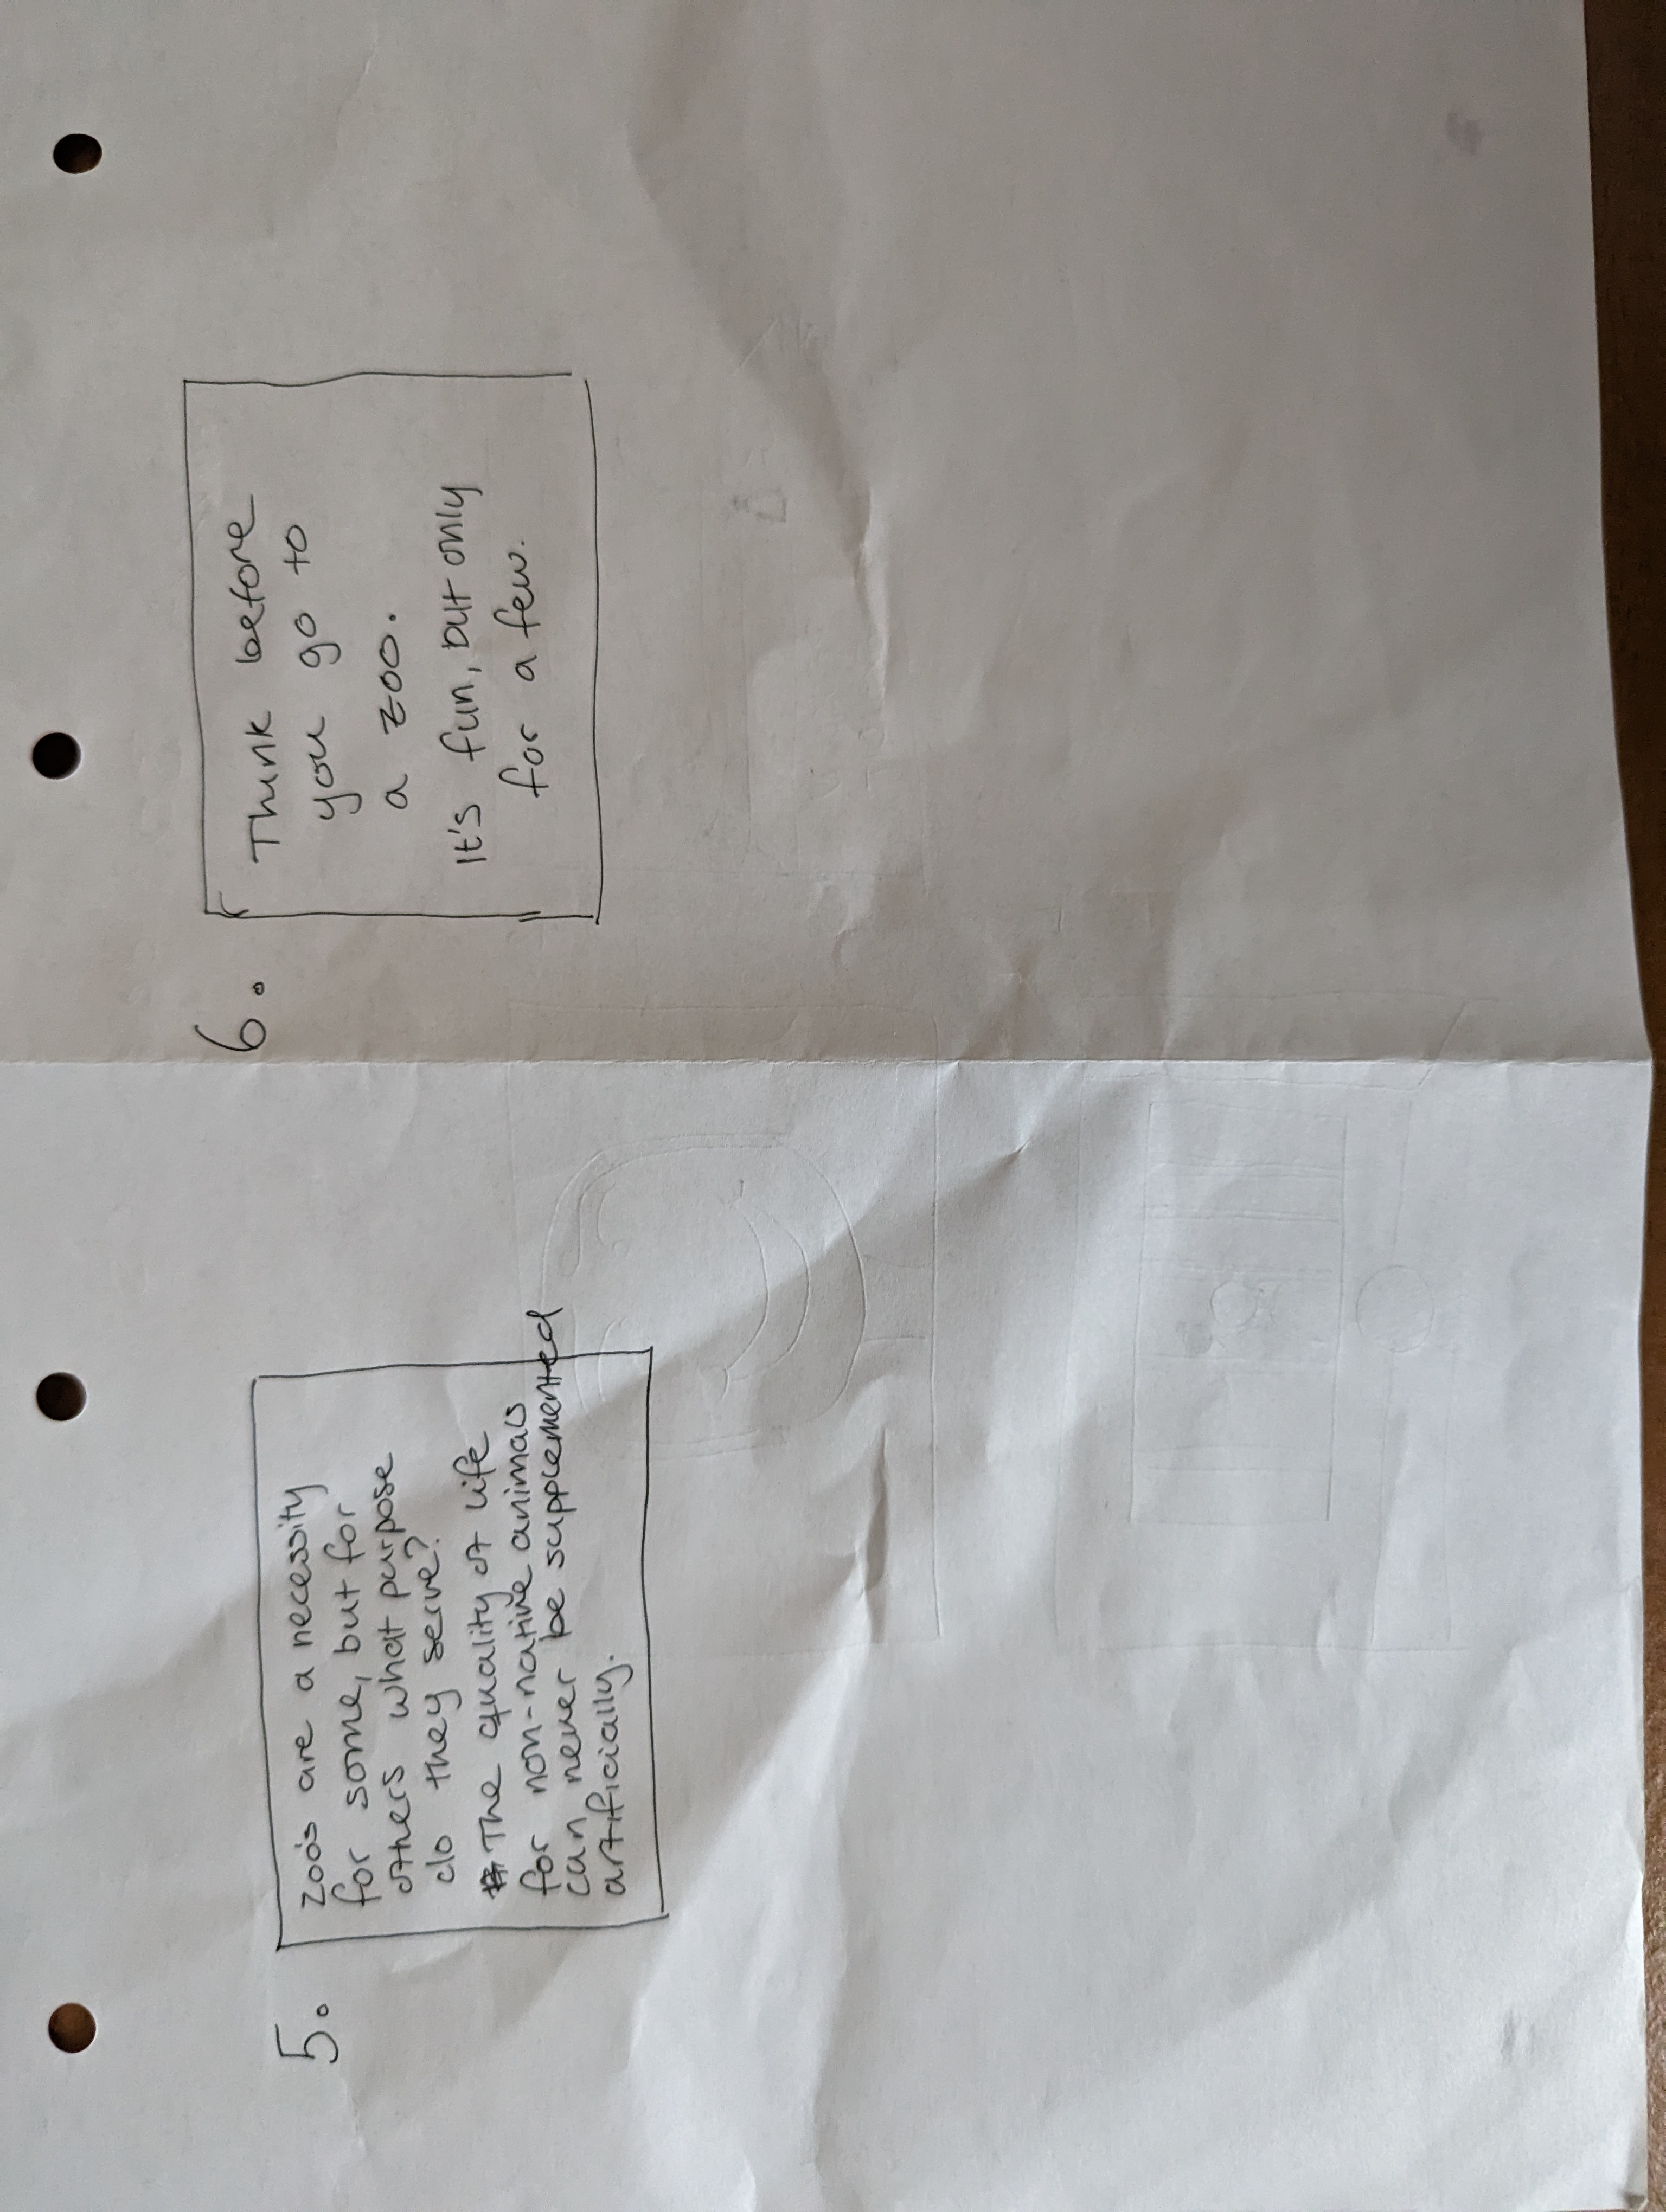 5.
Zoo's are a necessity
for some, but for
others what purpose
do they serve?
The quality of life
for non-native animals
can never be supplemented
artificially.
6.
Think before
you go to
a zoo.
It's fun, but only
for a few.